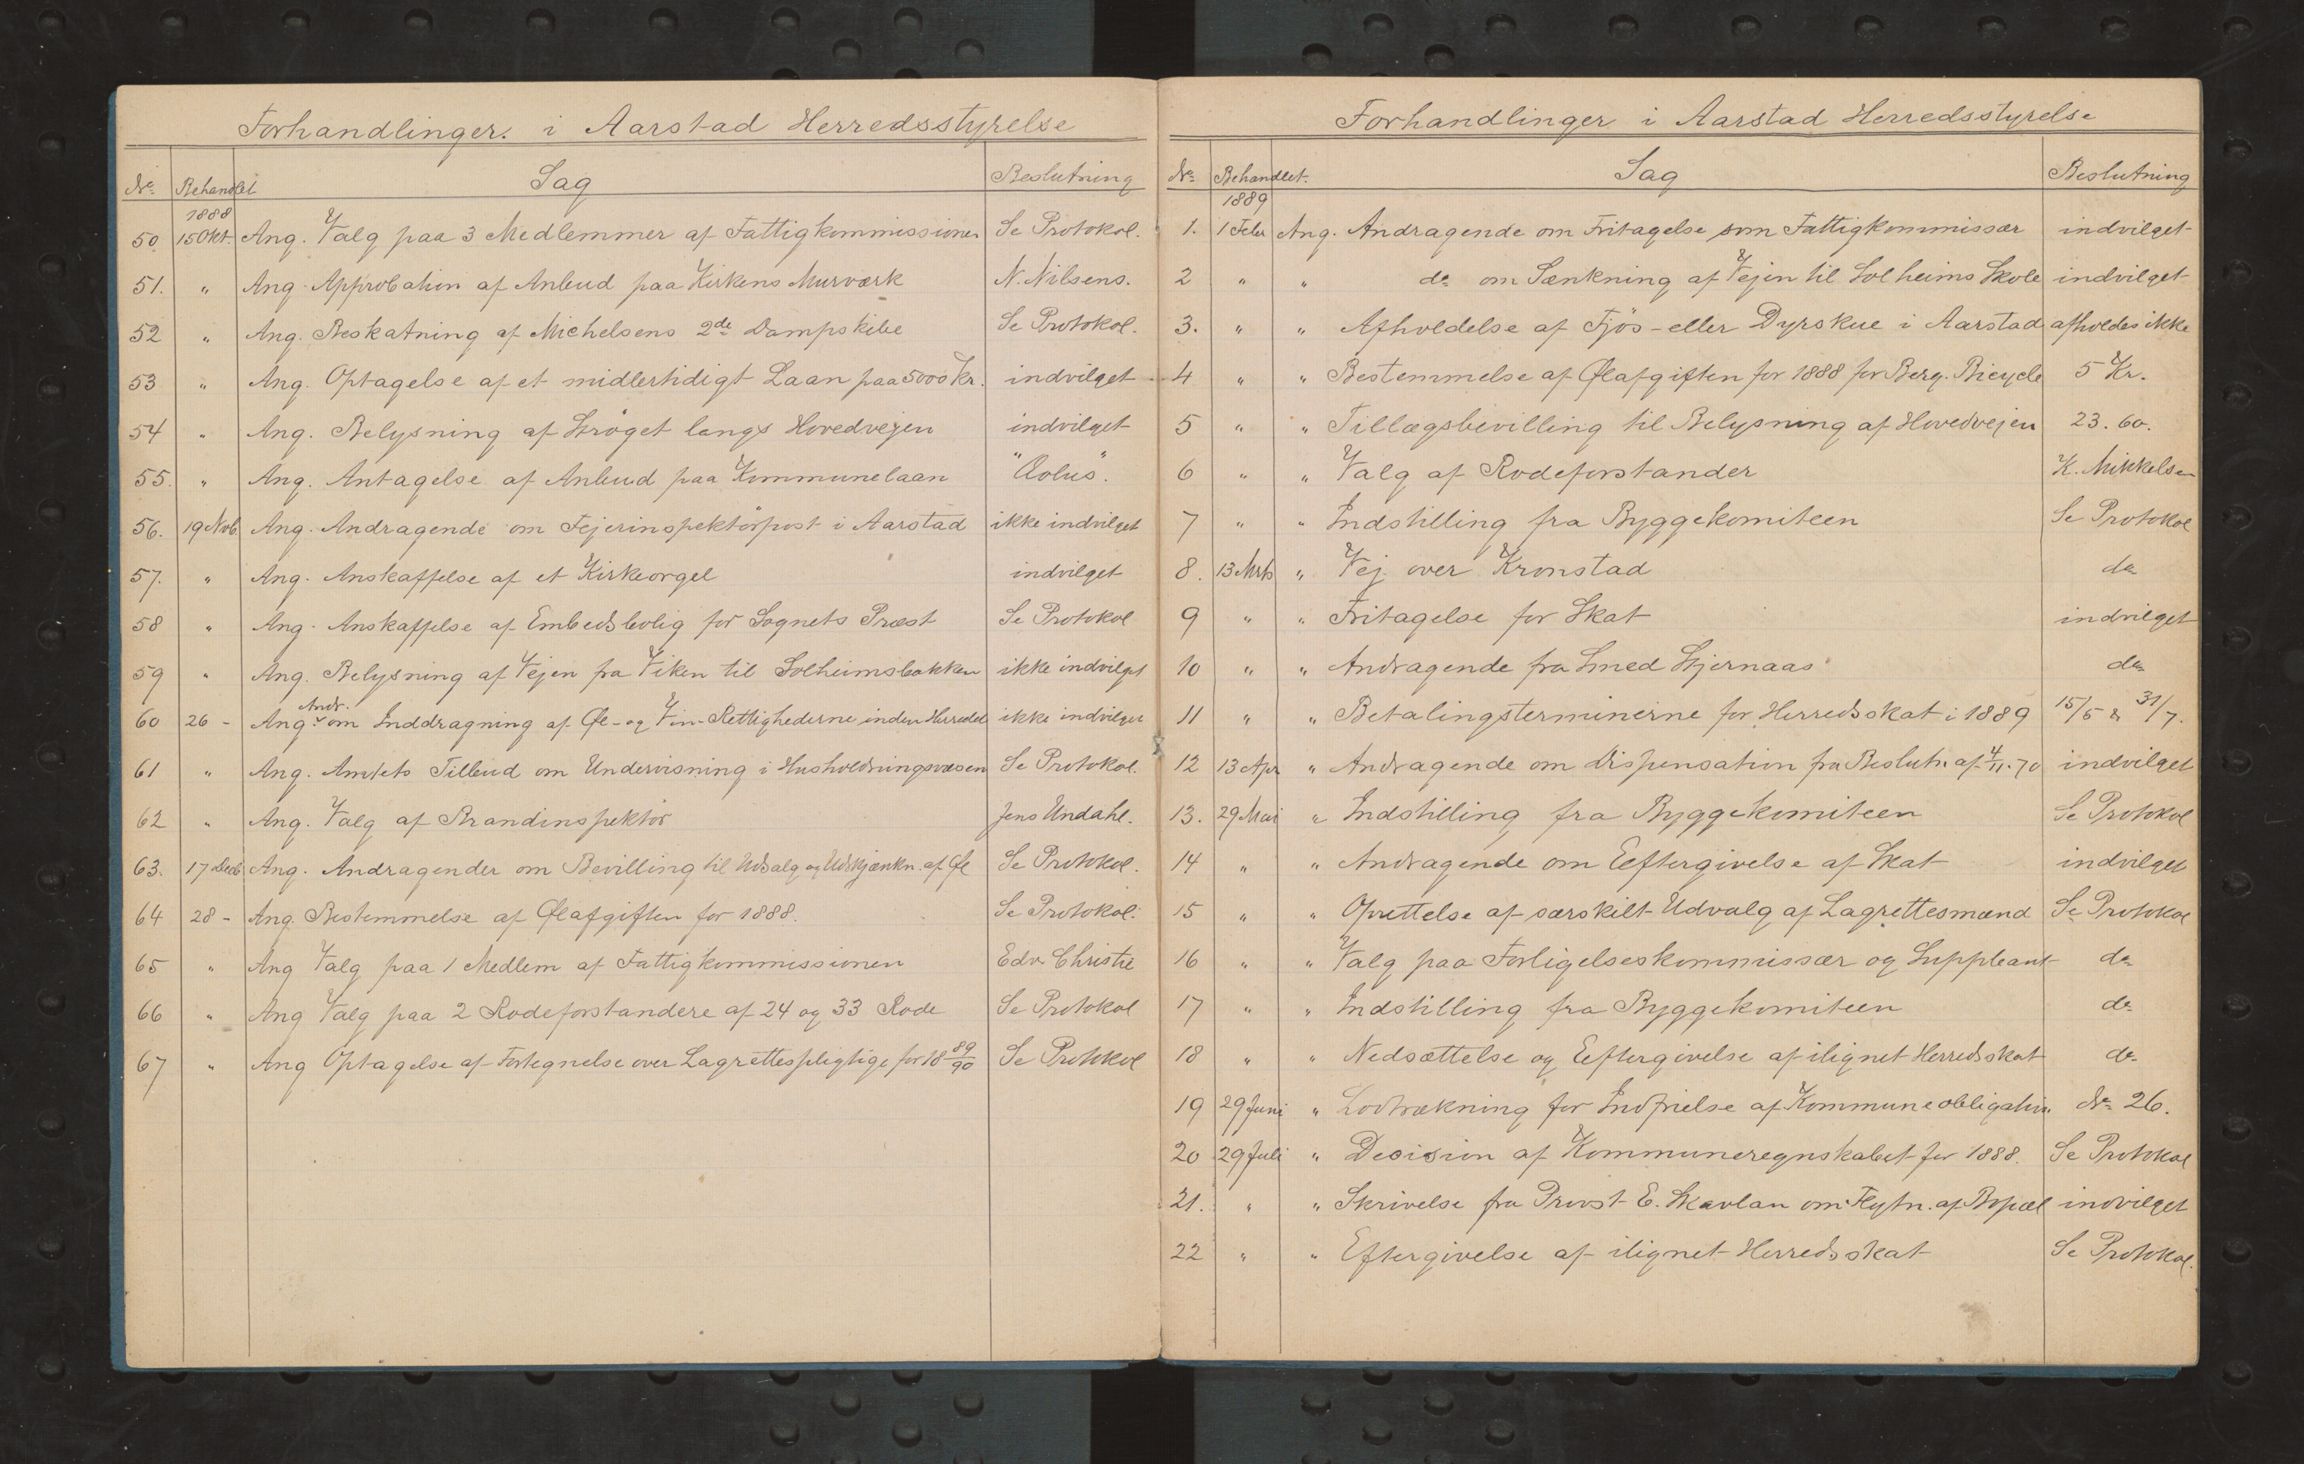 Forhandlinger i Aarstad Herredsstyrelse
No. Behandlet Sag Beslutning
1888
50 15 Okt. Ang. Valg paa 3 Medlemmer af Fattigkommissionen Se Protokol.
51. " Ang. Approbation af Anbud paa Kirkens Murværk N. Nilsens.
52 " Ang. Beskatning af Michelsens 2de Dampskibe Se Protokol.
53 " Ang. Optagelse af et midlertidigt Laan paa 5000 Kr. indvilget
54 " Ang. Belysning af Strøget langs Hovedvejen indvilget
55. " Ang. Antagelse af Anbud paa Kommunelaan "Æolus".
56. 19 Novb. Ang. Andragende om Fejerinspektørpost i Aarstad ikke indvilget
57. " Ang. Anskaffelse af et Kirkeorgel indvilget
58 " Ang. Anskaffelse af Embedsbolig for Sognets Præst Se Protokol
59 " Ang. Belysning af Vejen fra Viken til Solheimsbakken ikke indvilget
60 26 - Ang. Andr. om Inddragning af Øl- og Vin-Rettighederne inden Herredet ikke indvilget
61 " Ang. Amtets Tilbud om Undervisning i Husholdningsvæsen Se Protokol.
62 " Ang. Valg af Brandinspektør Jens Undahl.
63. 17 Decb Ang. Andragender om Bevilling til Udsalg og Udskjænkn. af Øl Se Protokol.
64 28 - Ang. Bestemmelse af Ølafgiften for 1888. Se Protokol.
65 " Ang Valg paa 1 Medlem af Fattigkommissionen Edv. Christie
66 " Ang Valg paa 2 Rodeforstandere af 24 og 33 Rode Se Protokol
67 " Ang Optagelse af Fortegnelse over Lagrettespligtige for 18 89/90 Se Protokol
Forhandlinger i Aarstad Herredsstyrelse
No. Behandlet. Sag Beslutning
1889
1. 1 Febr Ang. Andragende om Fritagelse som Fattigkommissær indvilget
2 " " do om Sænkning af Vejen til Solheims Skole indvilget
3. " " Afholdelse af Fjøs- eller Dyrskue i Aarstad afholdes ikke
4 " " Bestemmelse af Ølafgiften for 1888 for Berg. Bicycle 5 Kr.
5 " " Tillægsbevilling til Belysning af Hovedvejen 23.60.
6 " " Valg af Rodeforstander K. Mikkelsen
7 " " Indstilling fra Byggekomiteen Se Protokol
8. 13 Mrts " Vej over Kronstad do
9 " " Fritagelse for Skat indvilget
10 " " Andragende fra Smed Stjernaas do
11 " " Betalingsterminerne for Herredsskat i 1889 15/5 & 31/7.
12 13 Apr " Andragende om Dispensation fra Beslutn. af 4/11.70 indvilget
13. 29 Mai " Indstilling fra Byggekomiteen Se Protokol
14 " " Andragende om Eeftergivelse af Skat indvilget
15 " " Oprettelse af særskilt Udvalg af Lagrettesmænd Se Protokol
16 " " Valg paa Forligelseskommissær og Suppleant do
17 " " Indstilling fra Byggekomiteen do
18 " " Nedsættelse og Eeftergivelse af ilignet Herredsskat do
19 29 Juni " Lodtrækning for Indfrielse af Kommuneobligation. No 26.
20 29 Juli " Decision af Kommuneregnskabet for 1888. Se Protokol
21. " " Skrivelse fra Provst E. Skavlan om Flytn. af Bopæl indvilget
22 " " Eftergivelse af ilignet Herredsskat Se Protokol.